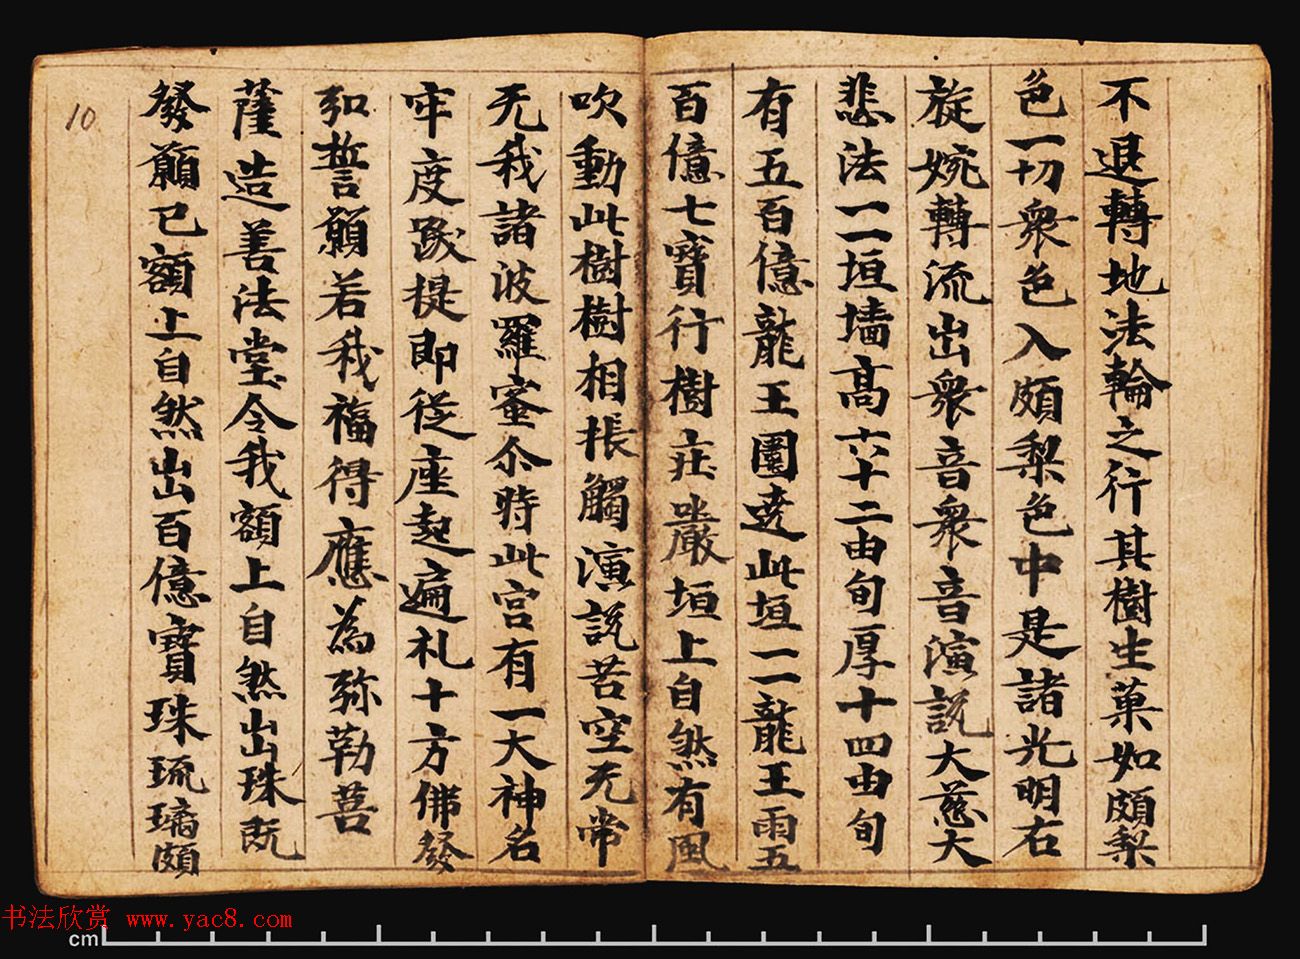 不退轉地法輪之行其樹生菓如頗梨
色一切衆色入頗梨色中是諸光明右
旋婉轉流出衆音衆音演說大慈大
悲法一一垣墻高六十二由旬厚十四由旬
有五百億龍王圍遶此垣一一龍王雨五
百億七寶行樹莊嚴垣上自然有風
吹動此樹樹相掁觸演說苦空无常
无我諸波羅蜜尒時此宮有一大神名
牢度跋提即從座起遍礼十方佛發
弘誓願若我福得應為弥勒菩
薩造善法堂令我額上自然出珠既
發願已額上自然出百億寶珠琉璃頗
10
书法欣赏 www.yac8.com
cm